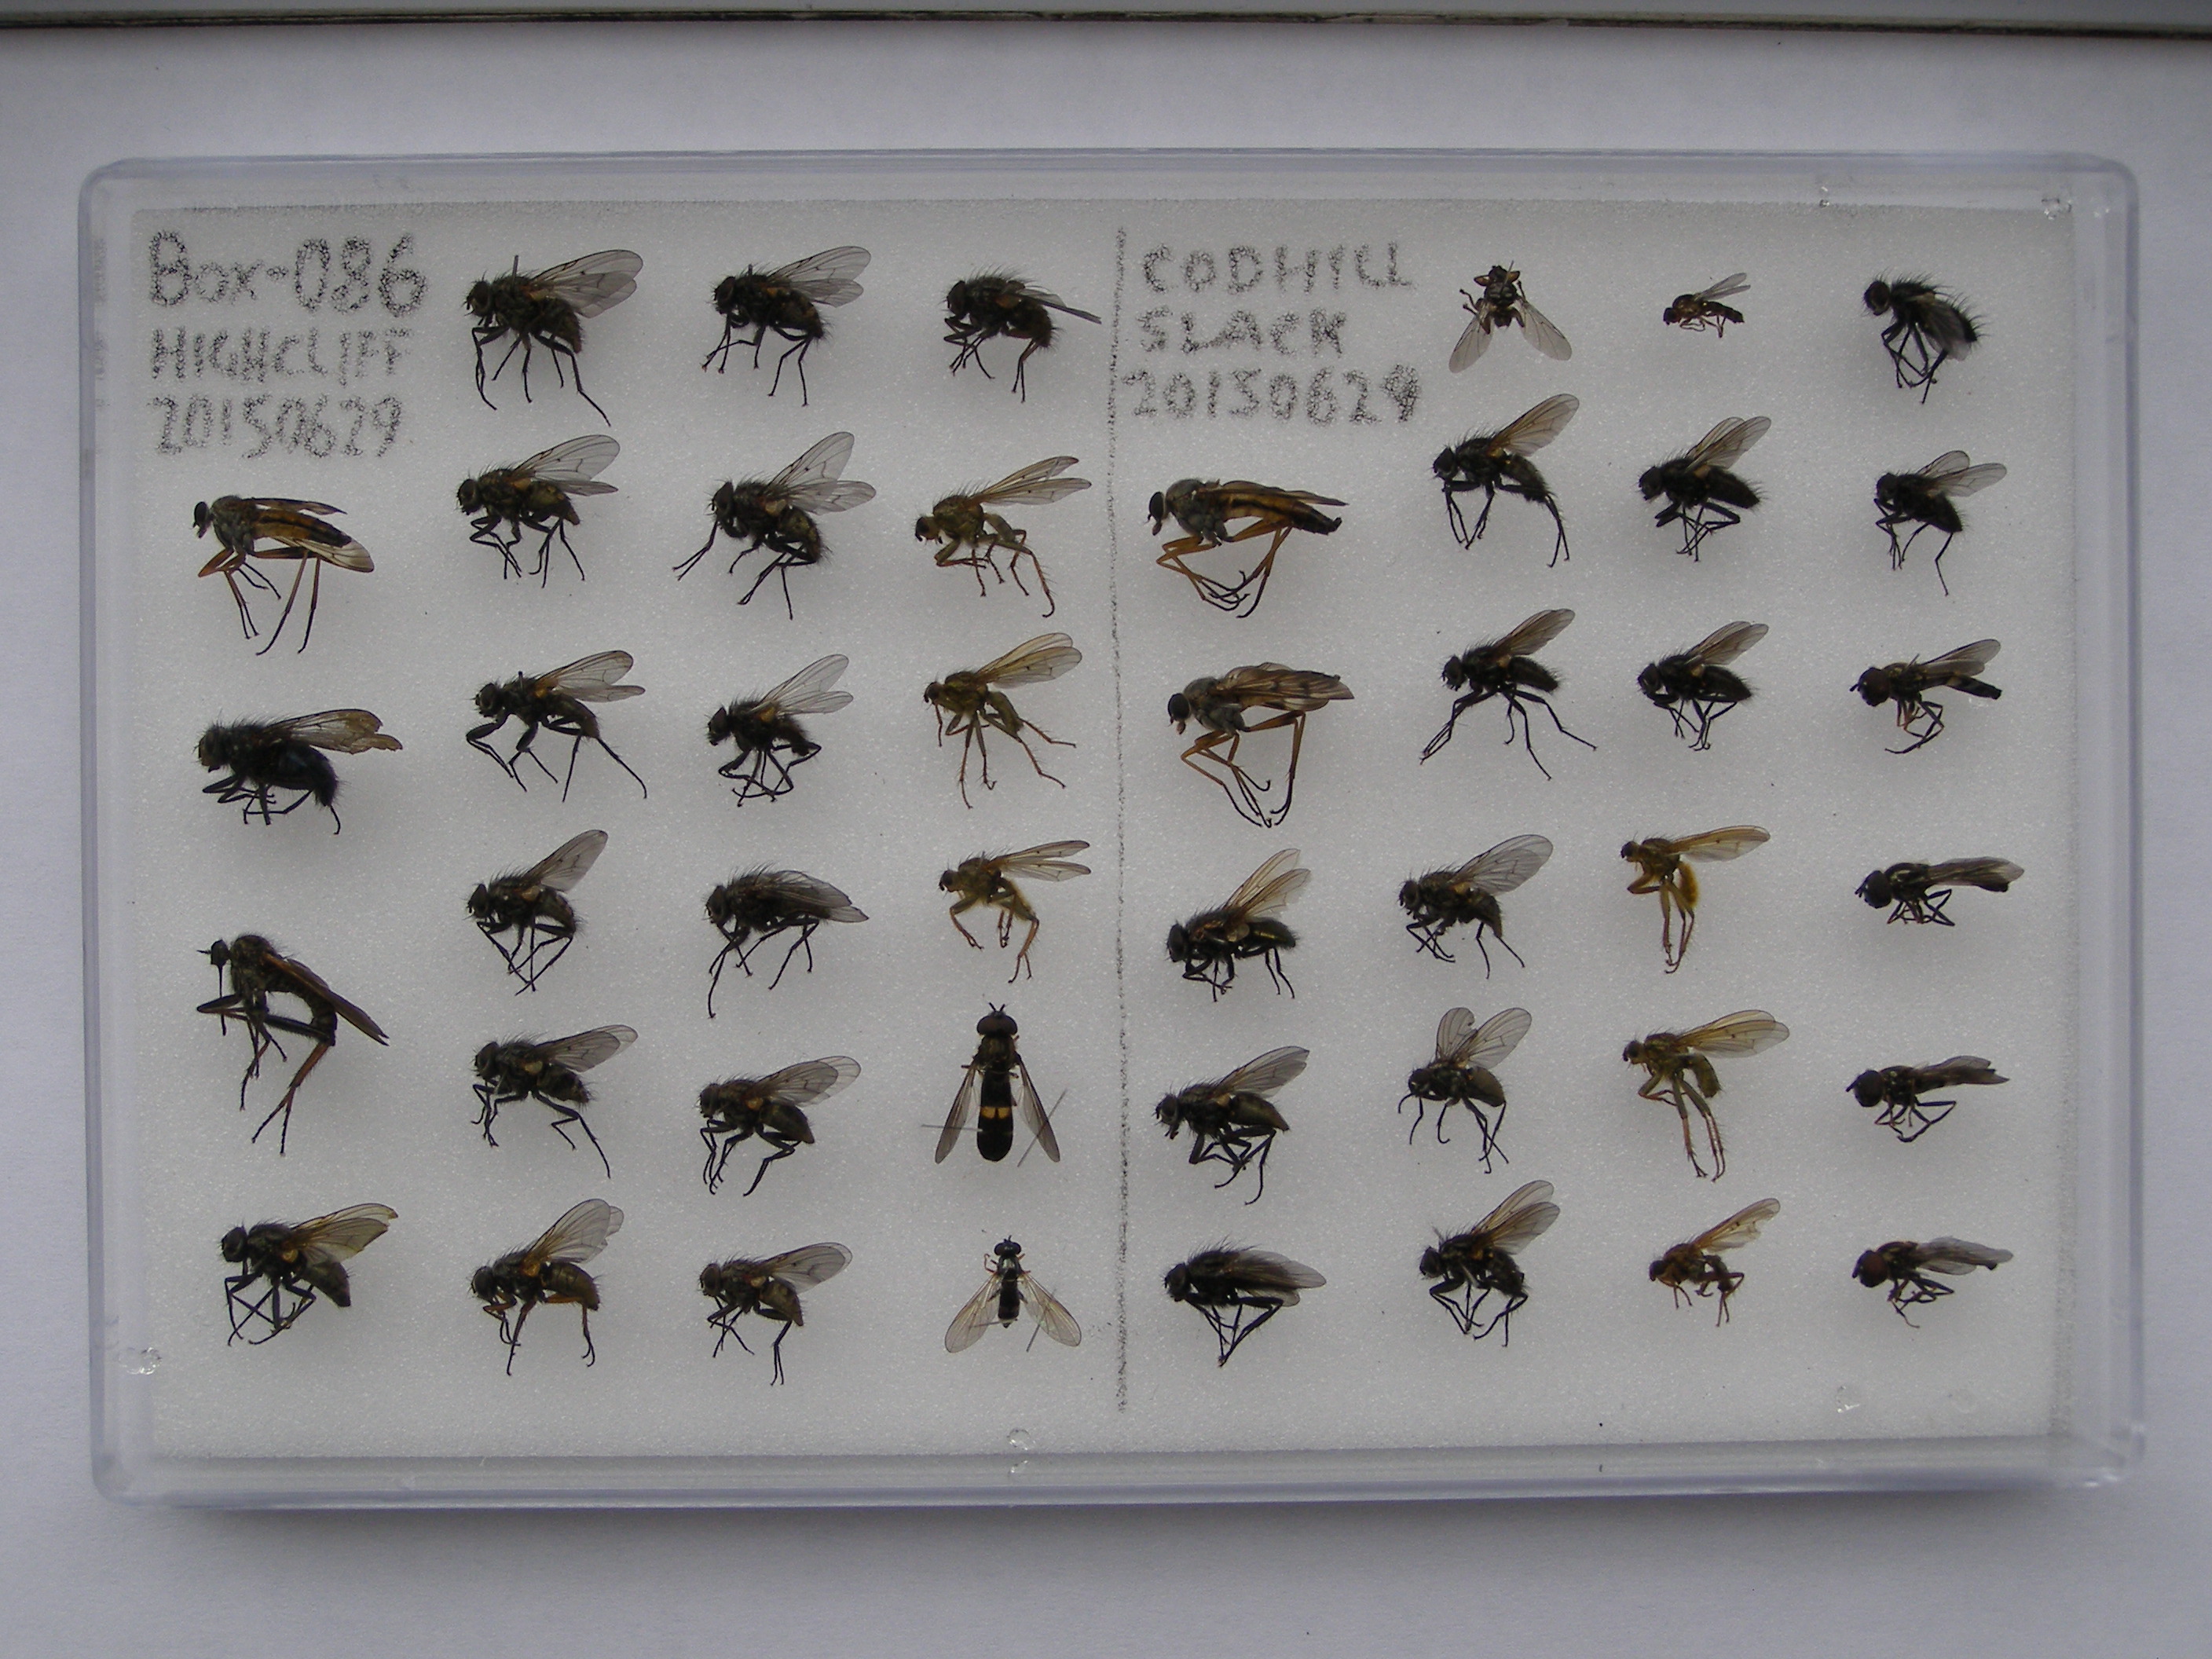 Box-086
HIGHCLIFF
20150629
CODHILL
SLACK
20150629